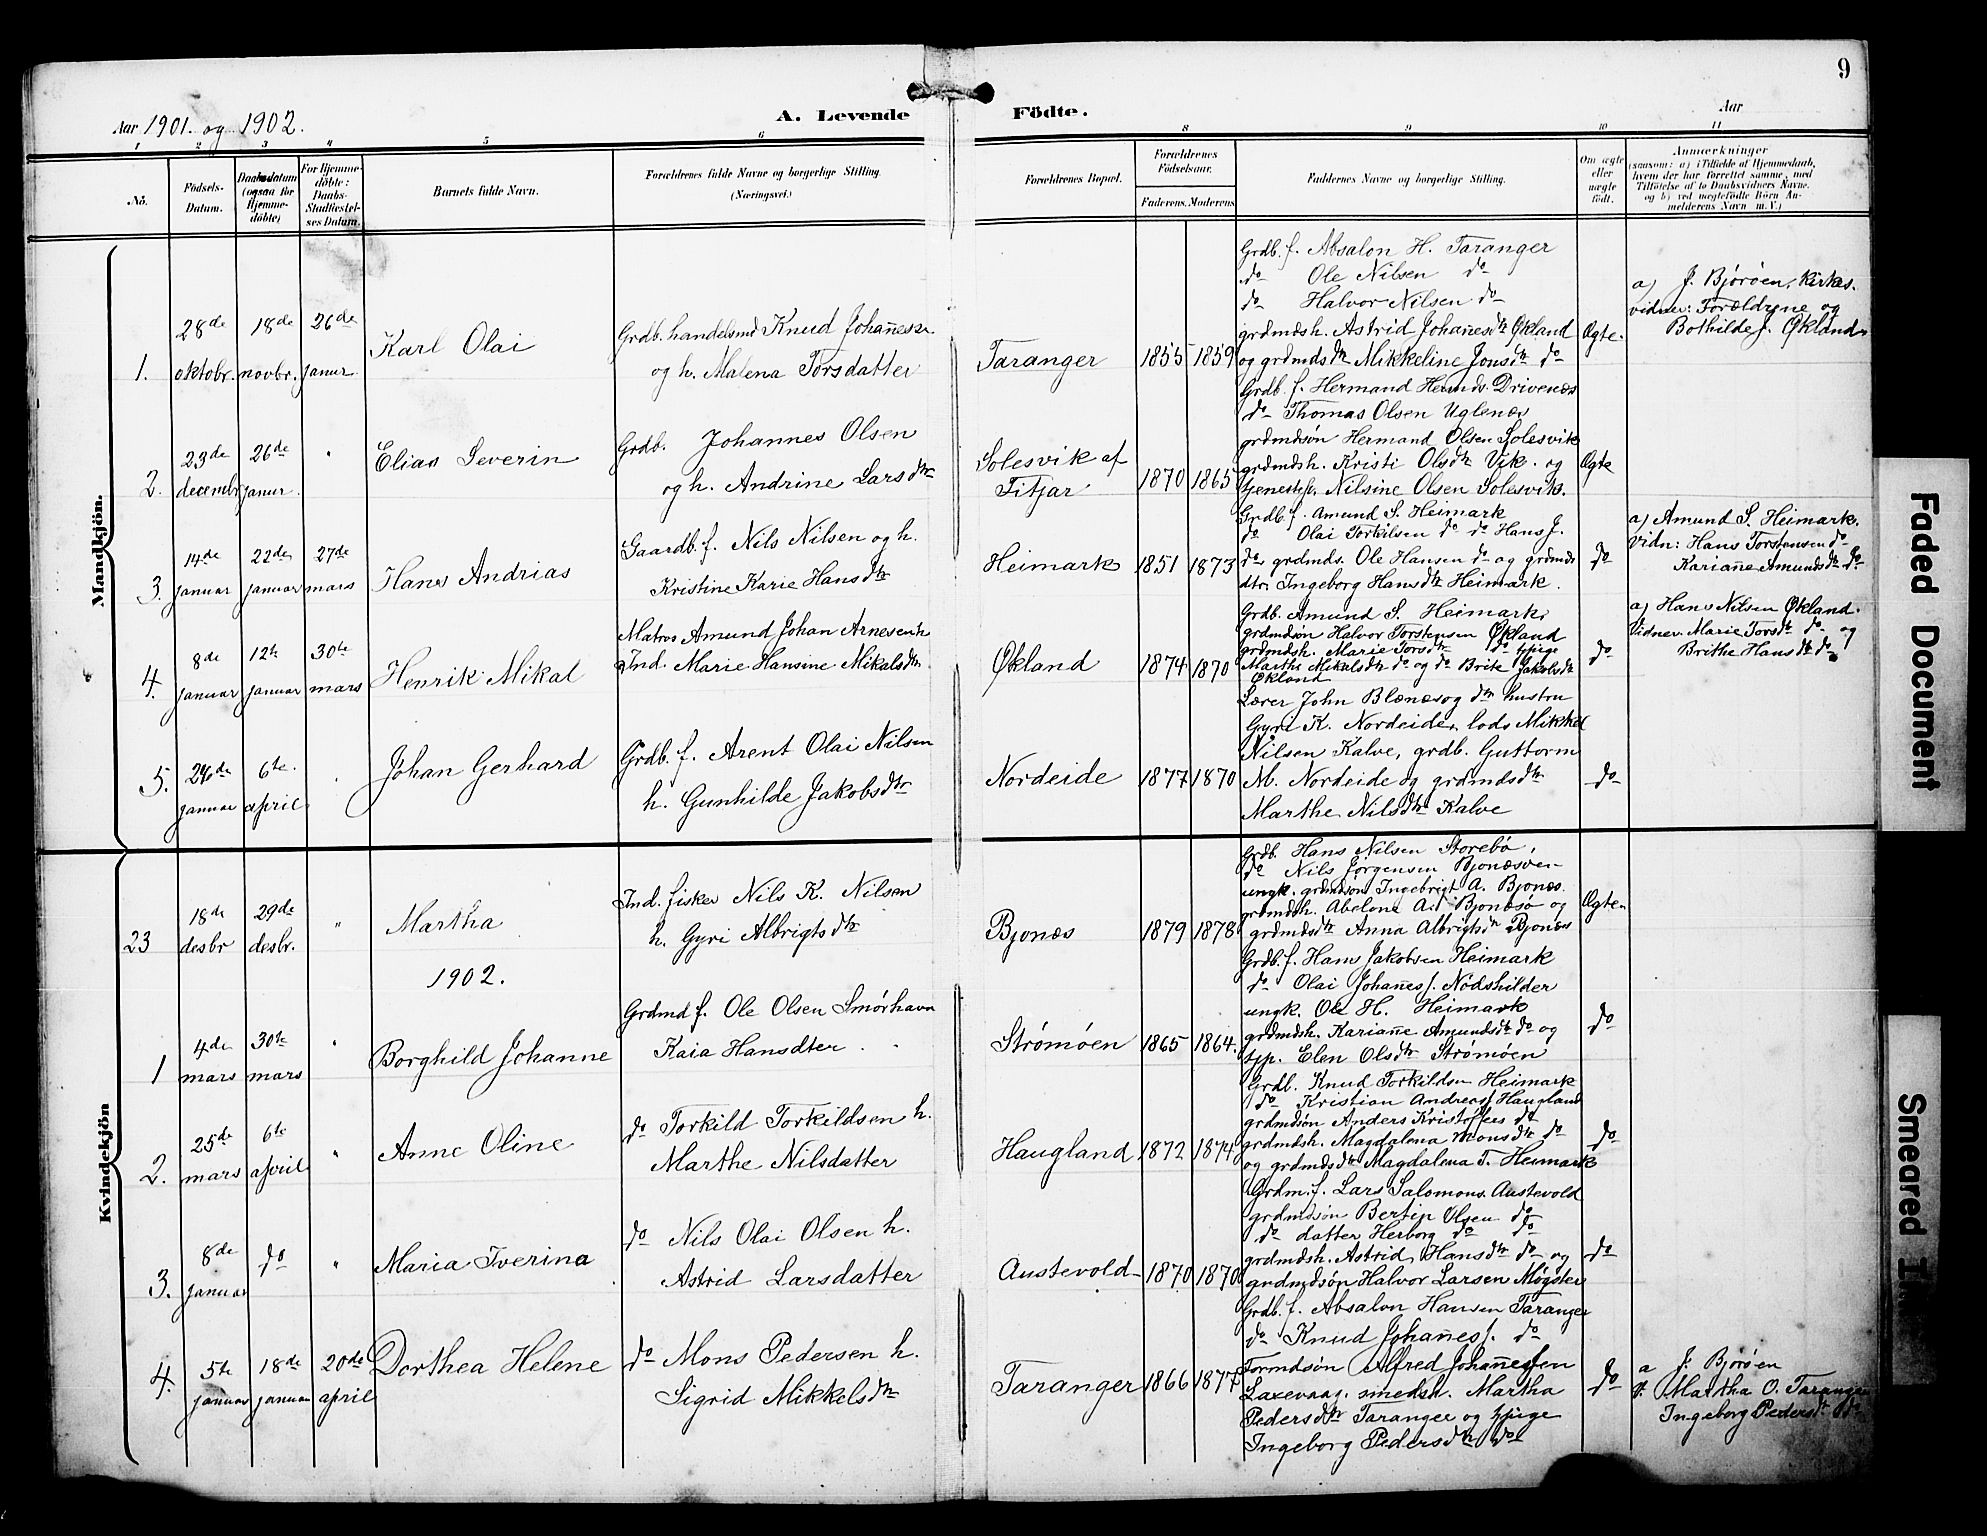 9
Aar 1901. og 1902.
A. Levende Födte.
Aar
1 2 3 4 5 6 8 9 10 11
No.
Födsels-Datum.
Daabsdatum (ogsaa for Hjemme-döbte)
For Hjemme-döbte: Daabs-Stadfæstel-ses Datum.
Barnets fulde Navn.
Forældrenes fulde Navne og borgerlige Stilling. (Næringsvei.)
Forældrenes Bopæl.
Forældrenes Födselsaar.
Faderens. Moderens.
Faddernes Navne og borgerlige Stilling.
Om ægte eller uægte födt.
Anmærkninger
(saasom: a) i Tilfælde af Hjemmedaab, hvem der har forrettet samme, med Tilföielse af to Daabsvidners Navne, og b) ved uægtefödte Börn An-melderens Navn m. V.)
Mandkjön.
1. 28de oktobr. 18de novbr. 26de janur.
Karl Olai
Grdb. handelsmd Knud Johan̄esn.
og h. Malena Torsdatter
Taranger 1855 1859
Grdb. f. Absalon H. Taranger
do Ole Nilsen do
do Halvor Nilsen do
grdmdsh. Astrid Johan̄esdtr Økland
og grdmdsdtr Mikkeline Jonsdtr do
Ægte.
a) J. Bjørøen, Kirkes.
vidner: Forældrene og
Bothilde J. Økland
2. 23de decembr 26de janur. "
Elias Severin
Grdb. Johannes Olsen
og h. Andrine Larsdtr
Solesvik af
Fitjar 1870 1865
Grdb. f. Hermand Hermds. Drivenæs
do Thomas Olsen Uglenæs
grdmdsøn Hermand Olsen Solesvik
grdmdsh. Kristi Olsdtr Vik. og
tjenestep. Nilsine Olsen Solesvik.
Ægte
3. 14de januar 22de januar 27de mars
Hans Andrias
Gaardb. f. Nils Nilsen og h.
Kristine Karie Hansdtr
Heimark 1851 1873
Grdb. f. Amund S. Heimark
do Olai Torkilsen do do Hans J.
do grdmds. Ole Hansen do og grdmds
dtr. Ingeborg Hansdtr Heimark.
do
a) Amund S. Heimark.
Vidn: Hans Torstensen do
Karian̄e Amundsdtr do
4. 8de januar 12te januar 30te mars
Henrik Mikal
Matros Amund Johan Arnesen h
Ind. Marie Hansine Mikalsdtr.
Økland 1874 1870
Grdb. Amund S. Heimark,
grdmdsøn Halvor Torstensen Økland
grdmdsh. Marie Torsdtr do pige
Marthe Mikelsdtr do og do Brite Jakobsdtr
Økland
do
a) Hans Nilsen Økland.
Vidner. Marie Torsdtr do og
Brithe Hansdtr do
5. 26de januar 6te april
Johan Gerhard
Grdb. f. Arent Olai Nilsen
h. Gunhilde Jakobsdtr
Nordeide 1877 1870
Lærer John Blænes og dtr hustru
Gyri K. Nordeide, lods Mikkel
Nilsen Kalve, grdb. Guttorm
M. Nordeide og grdmdsdtr
Marthe Nilsdtr Kalve
do
Kvindekjön
23 18de desbr 29de desbr. "
Martha
Ind. fisker Nils K. Nilsen
h. Gyri Albrigtsdtr
Bjonæs 1879 1878
Grdb. Hans Nilsen Storebø,
do Nils Jørgensen
ungk. grdmdsøn Ingebrigt A. Bjonæs
grdmdsh. Abelone A. Bjonæsø og
grdmdsdtr Anna Albrigtsdtr Bjonæs
Ægte
1902.
1 4de mars 30te mars "
Borghild Johanne
Grdmd f. Ole Olsen Smørhavn
Kaia Hansdter
Strømøen 1865 1864.
Grdb. f. Hans Jakobsen Heimark
do Olai Johan̄es f. Nodshilder
ungk. Ole H. Heimark
grdmdsh. Karian̄e Amundsdtr do og
tjp. Elen Olsdtr Strømøen
do
2. 25de mars 6te april "
Anne Oline
do Torkild Torkildsen h.
Marthe Nilsdatter
Haugland 1872 1874
Grdb. Knud Torkildsn Heimark
do Kristian Andreas f. Haugland
grdmdsøn Anders Kristoffers do
grdmdsh. Magdalena Monsdtr do
og grdmdsdtr Magdalena T. Heimark
do
3. 8de januar do "
Maria Iverina
do Nils Olai Olsen h.
Astrid Larsdatter
Austevold 1870 1870
Grdm. f. Lars Salomons. Austevold
grdmdsøn Bertin Olsen do
do datter Herborg do do
grdmdsh. Astrid Hansdtr do og
grdmdsøn Halvor Larsen Møgster
do
4. 5te januar 18de januar 20de april
Dorthea Helene
do Mons Pedersen h.
Sigrid Mikkelsdtr
Taranger 1866 1877
Grdb. f. Absalon Hansen Taranger
do Knud Johan̄es f. do
Formdsøn Alfred Johan̄essen
Laxevaag. smedsh. Martha
Pedersdtr Taranger og pige
Ingeborg Pedersdtr do
do
a J. Bjørøen
V. Martha O. Taranger
Ingeborg Pedersdtr do
Faded Document
Smeared